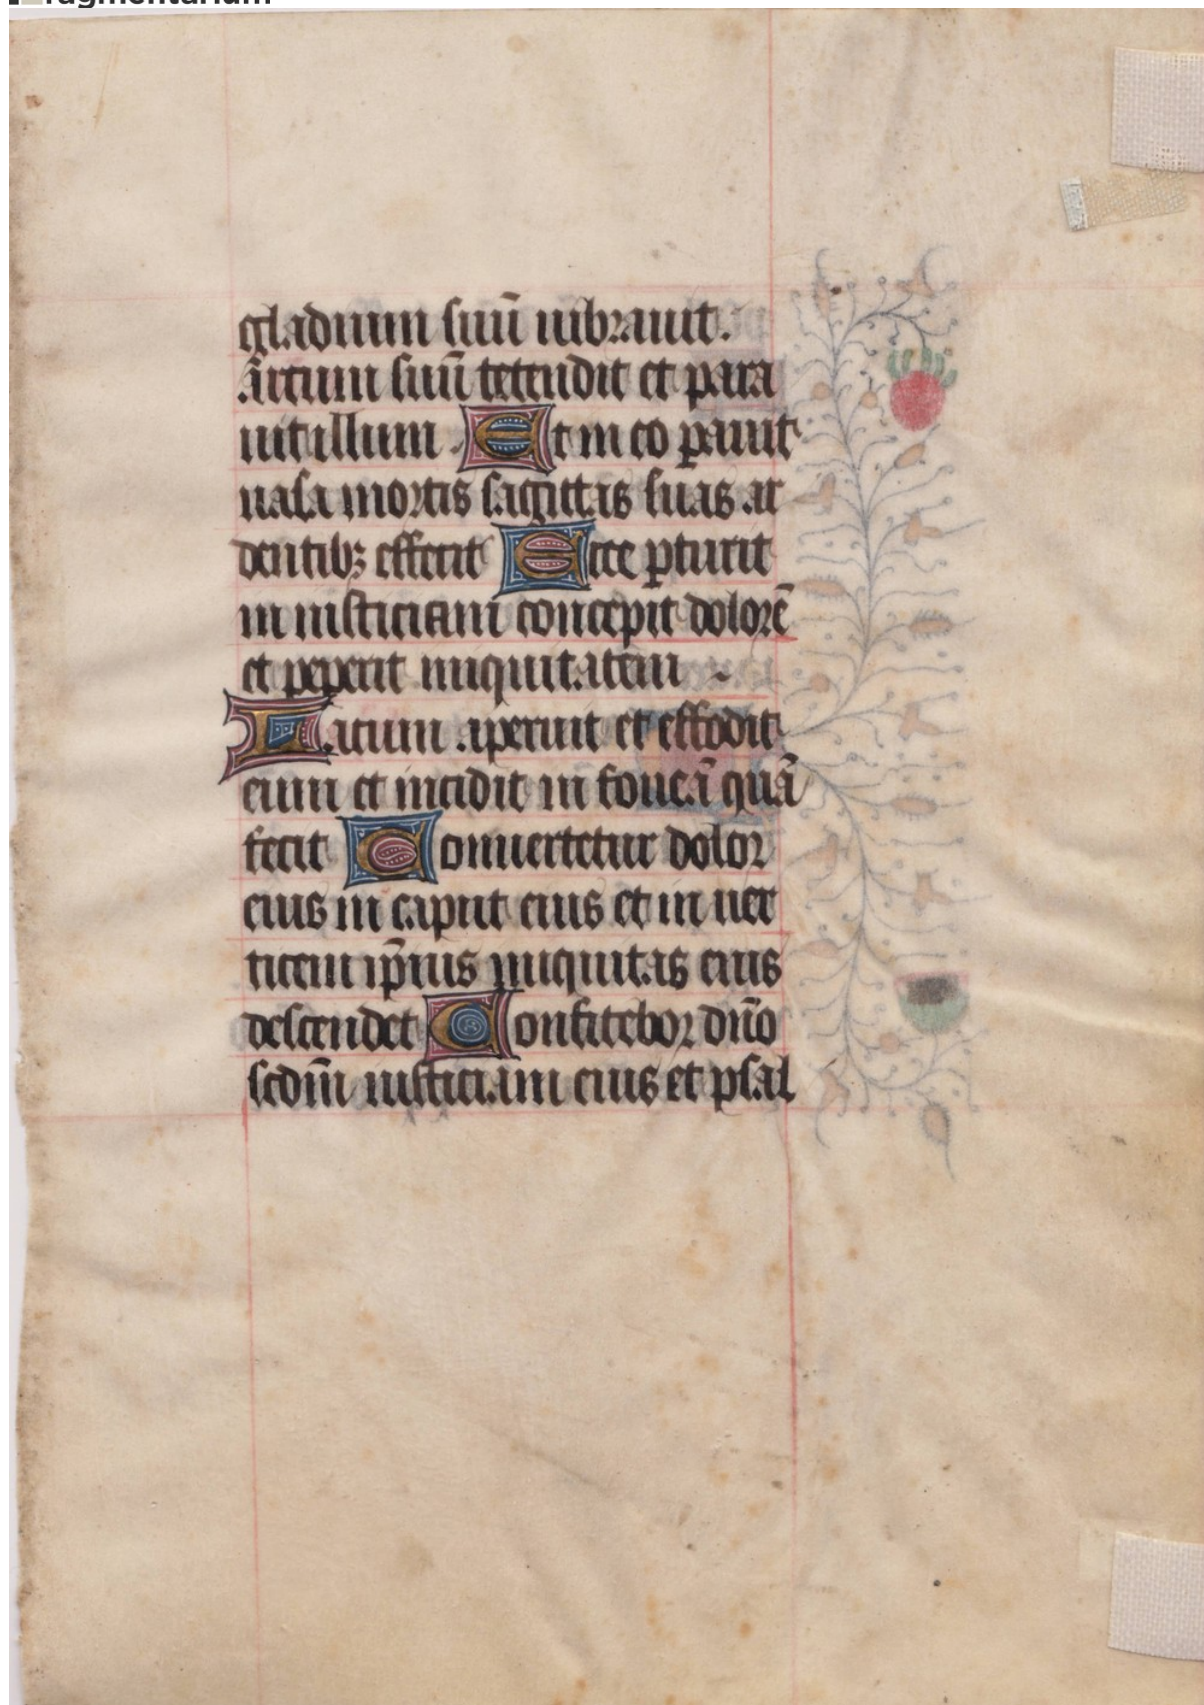 ragmentarium
gladium suū uibrauit.
Arcum suū tetendit et para
uit illum Et in eo ꝑauit
uasa mortis sagittas suas ar
dentibꝫ effecit Ecce ꝑturit
in iusticiam concepit dolorē
et peperit iniquitatem
Lacum aperuit et effodit
eum et incidit in foueā quā
fecit Conuertetur dolor
eius in caput eius et in uer
ticem ip̄ius iniquitas eius
descendet Confitebor dn̄o
scdm̄ iusticiam eius et psal